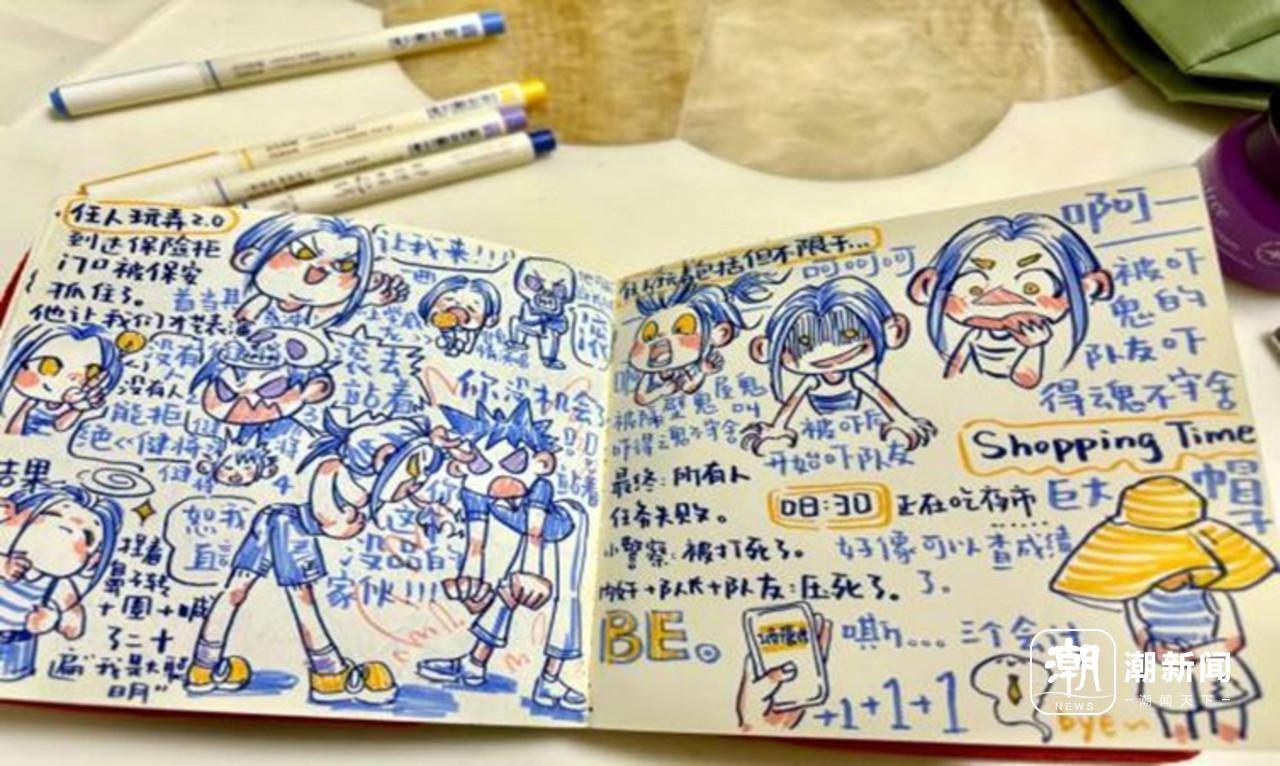 任人玩弄2.0
到达保险柜
门口被保安
抓住了。
他让我们才艺表演
让我来!!!
没有
没有人
能拒
绝
健将
滚去
站着
你没机会了
站着
结果
捏着
鼻子转
十圈+喊
了二十
遍"我是大聪
明"
恕我
直言
你
这个
没品的
家伙!!!
滚
任人玩弄包括但不限于...
呵呵呵
啊一
被隔壁鬼屋鬼叫
吓得魂不守舍
被吓后
开始吓队友
被吓
鬼的
队友吓
得魂不守舍
最终:所有人
任务失败。
小警察:被打死了。
内奸+队长+队友:压死了。
BE。
Shopping Time
08:30
正在吃夜市
巨大
帽子
好像可以查成绩
了。
嘶...三个会计
+1+1+1
Bye~
潮
NEWS
潮新闻
潮闻天下